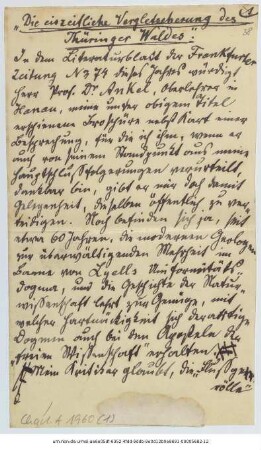 (1
38
„Die eiszeitliche Vergletscherung des
Thüringer Waldes."
In dem Literaturblatt der Frankfurter
Zeitung No 74 dieses Jahres würdigt
Herr Prof. Dr. Ankel, Oberlehrer in
Hanau, meine unter obigem Titel
erschienene Broschüre nebst Karte einer
Besprechung, für die ich ihm, wenn er
auch von seinem Standpunkt aus meine
Hauptschlußfolgerungen verurteilt,
dankbar bin, gibt er mir doch damit
Gelegenheit, dieselben öffentlich zu ver-
teidigen. Noch befinden sich ja, seit
etwa 60 Jahren, die modernen Geologen
zur überwältigenden Mehrheit im
Banne von Lyells Uniformitäts-
dogma, und die Geschichte der Natur-
wissenschaft lehrt zur Genüge, mit
welcher Hartnäckigkeit sich derartige
Dogmen auch bei den Aposteln der
„freien Wissenschaft" erhalten.
Mein Kritiker glaubt, die „Flußge-
rölle"